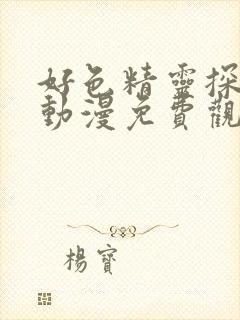 好色精靈探
動漫免費觀
楊寶